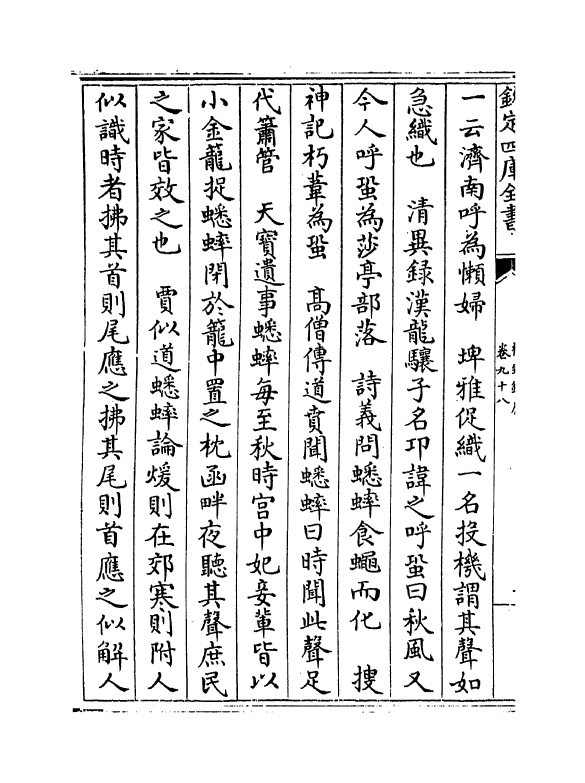 欽定四庫全書
卷九十八
一云濟南呼為懶婦　埤雅促織一名投機謂其聲如
急織也　清異録漢龍驤子名卭諱之呼蛩曰秋風又
今人呼蛩為莎亭部落　詩義問蟋蟀食蠅而化　搜
神記朽葦為蛩　髙僧傳道賁聞蟋蟀曰時聞此聲足
代簫管　天寳遺事蟋蟀每至秋時宫中妃妾輩皆以
小金籠捉蟋蟀閉於籠中置之枕函畔夜聽其聲庶民
之家皆效之也　賈似道蟋蟀論煖則在郊寒則附人
似識時者拂其首則尾應之拂其尾則首應之似解人